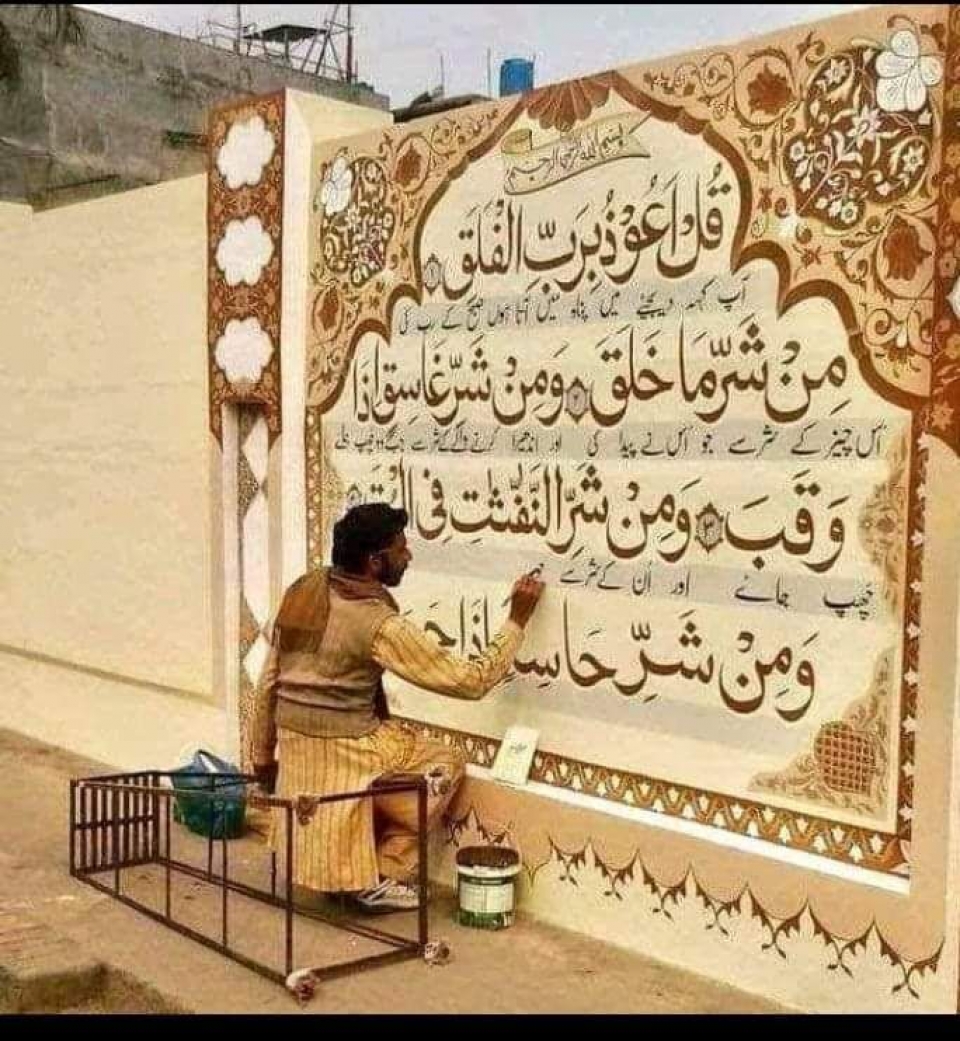 بسم الله الرحمن الرحيم
قُلْ اَعُوْذُ بِرَبِّ الْفَلَقِ ۱
آپ کہہ دیجئے میں پناہ میں آتا ہوں صبح کے رب کی
مِنْ شَرِّ مَا خَلَقَ ۲ وَمِنْ شَرِّ غَاسِقٍ اِذَا
اس چیز کے شر سے جو اس نے پیدا کی اور اندھیرا کرنے والے کے شر سے جب
وَقَبَ ۳ وَمِنْ شَرِّ النَّفّٰثٰتِ فِی
چھپ جائے اور ان کے شر سے
وَمِنْ شَرِّ حَاسِدٍ اِذَا